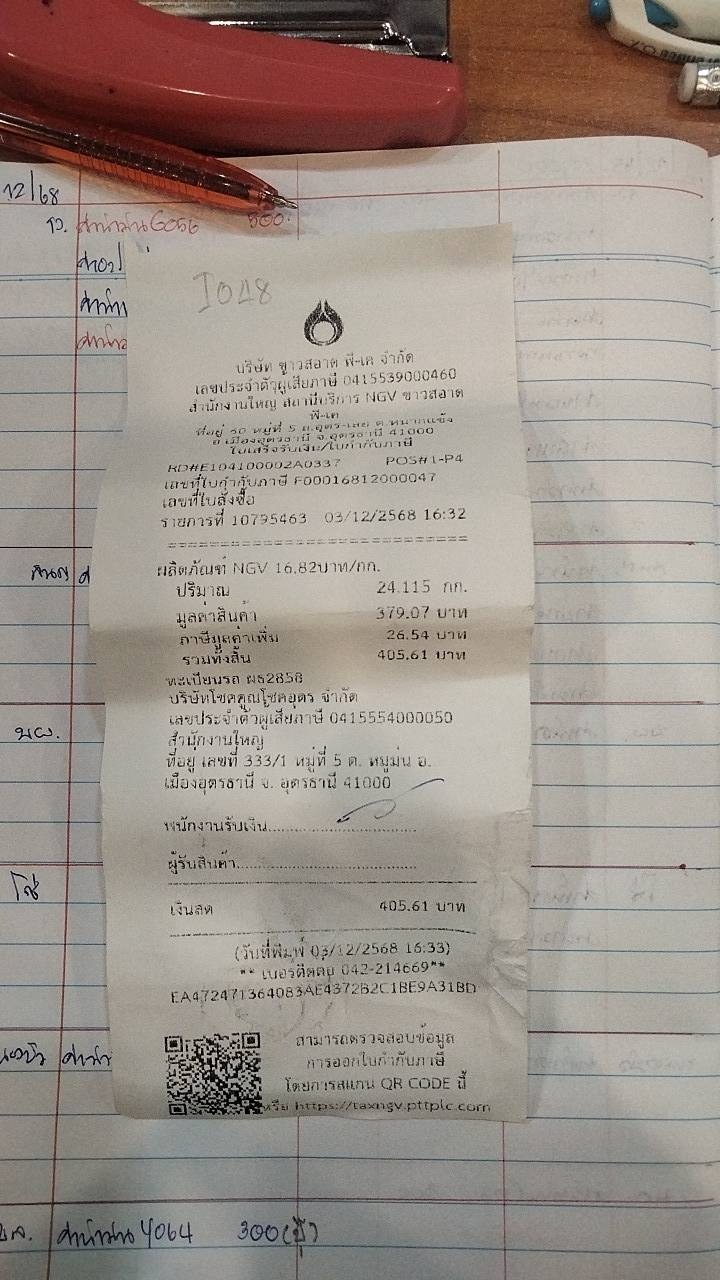 12/68
รว. ค่าน้ำมัน 6056 500.
I048
บริษัท ขาวสอาด พี-เค จำกัด
เลขประจำตัวผู้เสียภาษี 0415539000460
สำนักงานใหญ่ สถานีบริการ NGV ขาวสอาด
พี-เค
ที่อยู่ 50 หมู่ที่ 5 ถ.อุดร-เลย ต.หมากแข้ง
อ.เมืองอุดรธานี จ.อุดรธานี 41000
ใบเสร็จรับเงิน/ใบกำกับภาษี
RD#E104100002A0337 POS#1-P4
เลขที่ใบกำกับภาษี F00016812000047
เลขที่ใบสั่งซื้อ
รายการที่ 10795463 03/12/2568 16:32
ผลิตภัณฑ์ NGV 16.82บาท/กก.
ปริมาณ 24.115 กก.
มูลค่าสินค้า 379.07 บาท
ภาษีมูลค่าเพิ่ม 26.54 บาท
รวมทั้งสิ้น 405.61 บาท
ทะเบียนรถ ผธ2858
บริษัทโชคคูณโชคอุดร จำกัด
เลขประจำตัวผู้เสียภาษี 0415554000050
สำนักงานใหญ่
ที่อยู่ เลขที่ 333/1 หมู่ที่ 5 ต. หมูม่น อ.
เมืองอุดรธานี จ. อุดรธานี 41000
พนักงานรับเงิน
ผู้รับสินค้า
เงินสด 405.61 บาท
(วันที่พิมพ์ 03/12/2568 16:33)
** เบอร์ติดต่อ 042-214669**
EA472471364083AE4372B2C1BE9A31BD
สามารถตรวจสอบข้อมูล
การออกใบกำกับภาษี
โดยการสแกน QR CODE นี้
หรือ https://taxngv.pttplc.com
ค่าน้ำมัน 4064 300